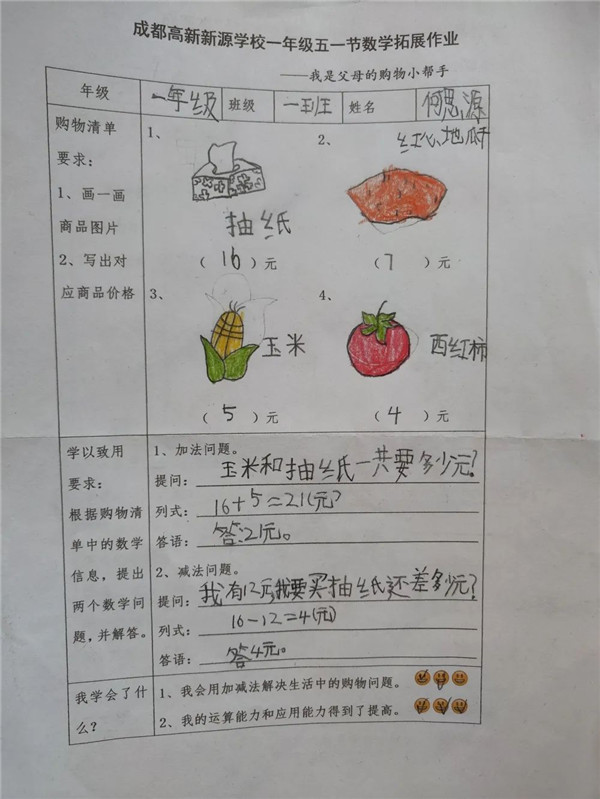 成都高新新源学校一年级五一节数学拓展作业
——我是父母的购物小帮手
年级 一年级 班级 一班 姓名 何思源
购物清单
要求：
1、画一画
商品图片
2、写出对
应商品价格
1、
抽纸
（ 16 ）元
2、
红心地瓜
（ 7 ）元
3、
玉米
（ 5 ）元
4、
西红柿
（ 4 ）元
学以致用
要求：
根据购物清
单中的数学
信息，提出
两个数学问
题，并解答。
1、加法问题。
提问：玉米和抽纸一共要多少元？
列式：16+5=21(元)
答语：答:21元。
2、减法问题。
提问：我有12元我要买抽纸还差多少元？
列式：16-12=4(元)
答语：答4元。
我学会了什
么？
1、我会用加减法解决生活中的购物问题。
2、我的运算能力和应用能力得到了提高。